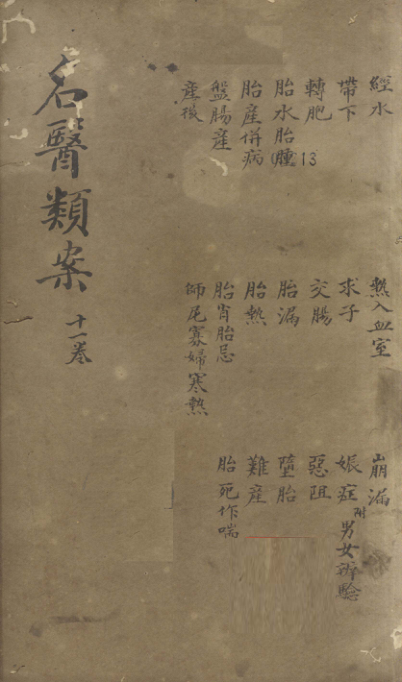 經水 熱入血室 崩漏
帶下 求子 娠症附男女辨驗
轉胞 交腸 惡阻
胎水胎(腫)13 胎漏 墮胎
胎產併病 胎熱 難產
盤腸產 胎肓胎忌 胎死作喘
產後 師尼寡婦寒熱
名醫類案 十一卷